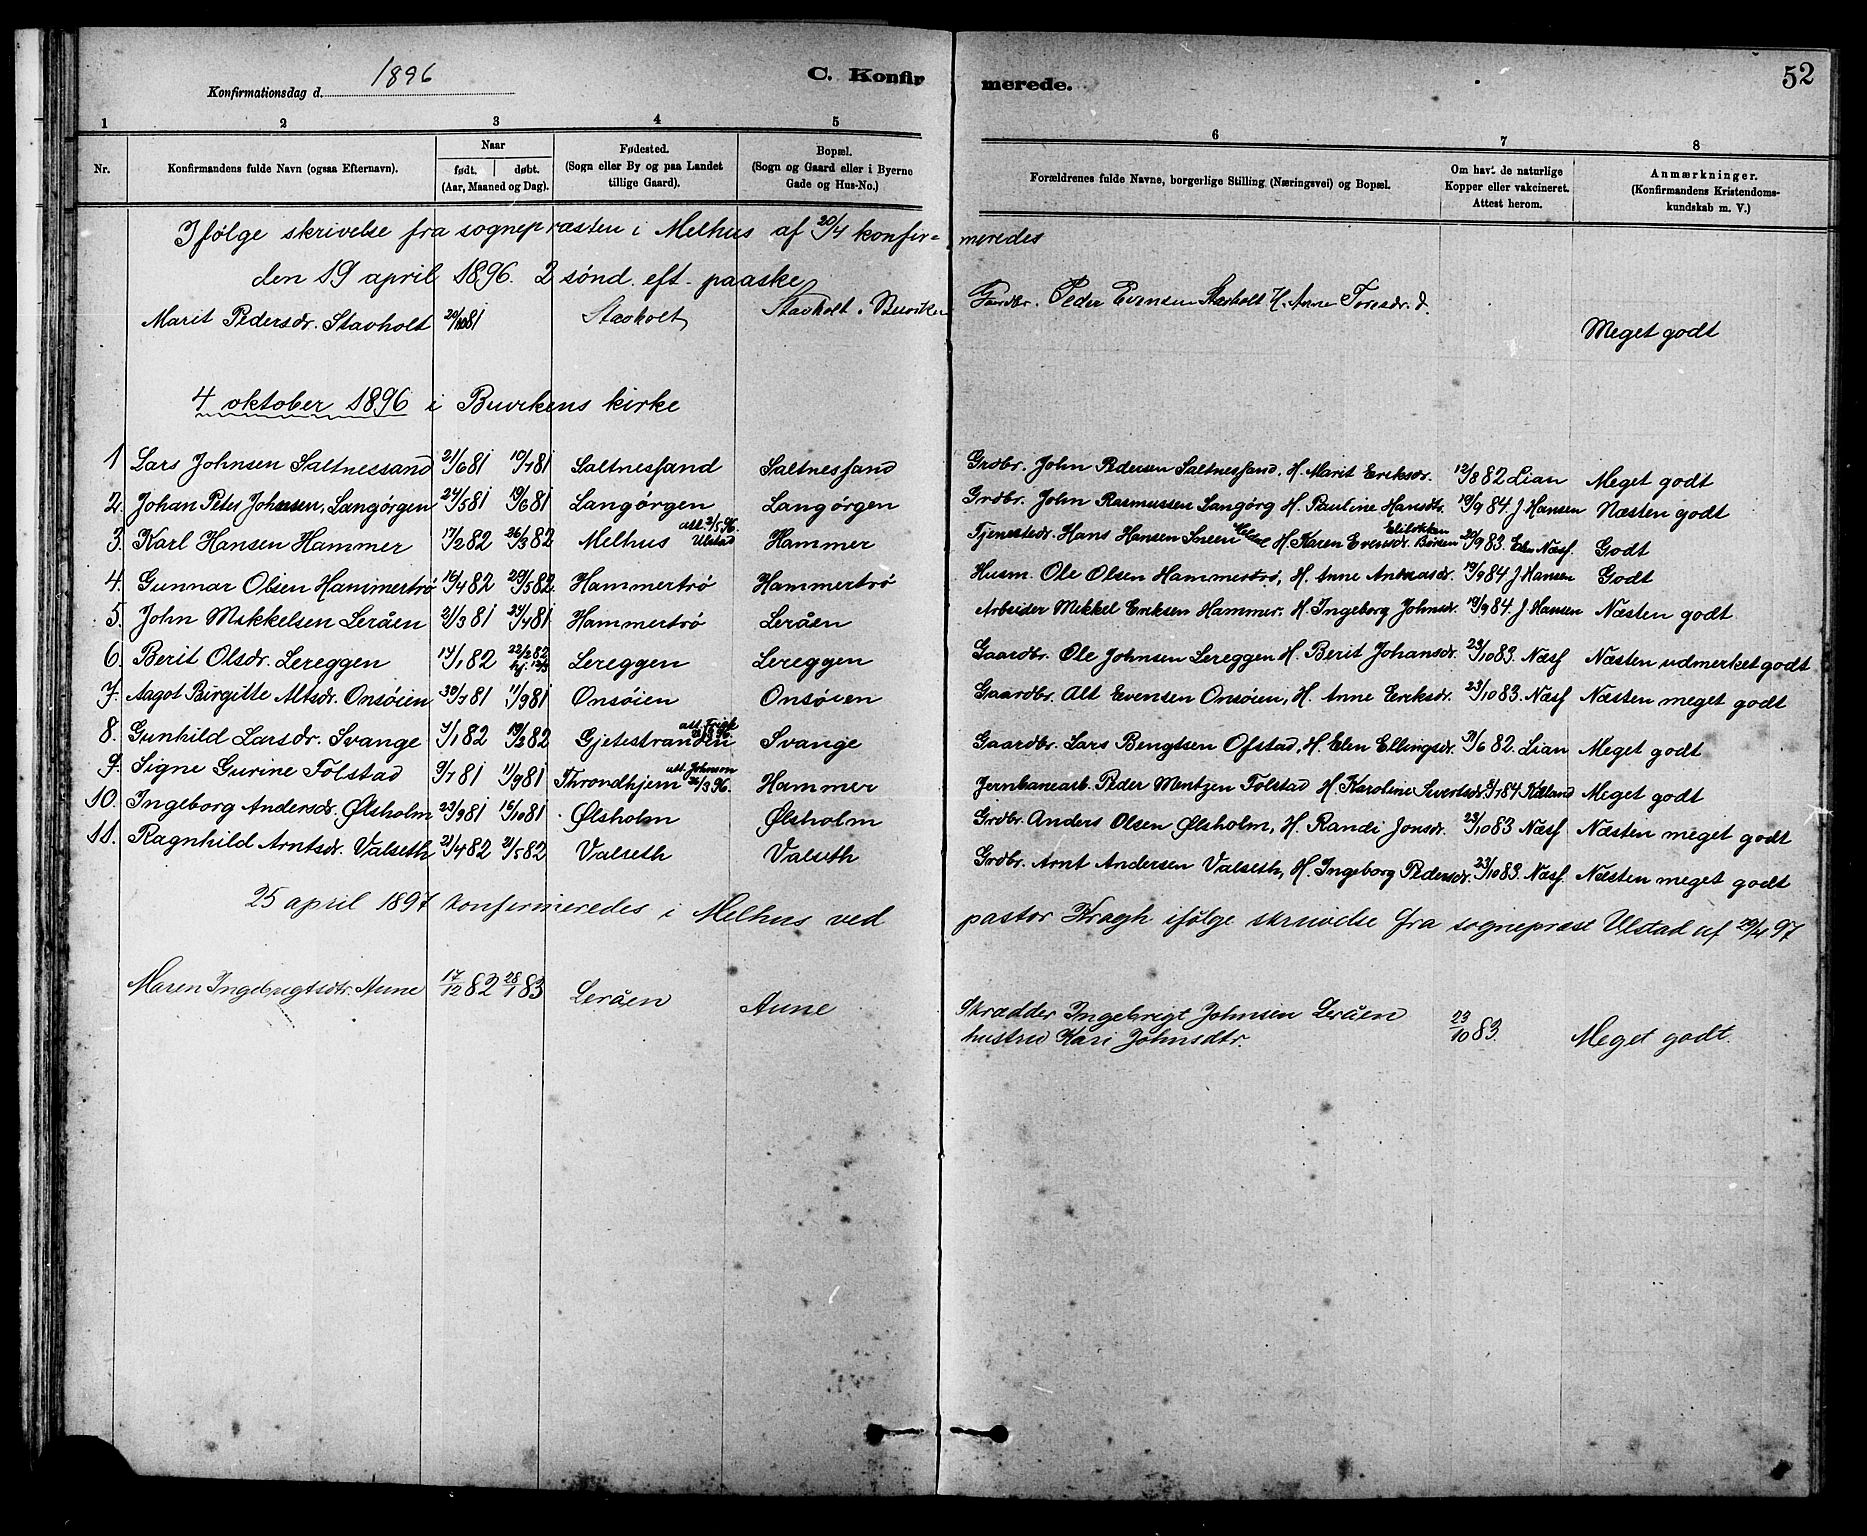 52
Konfirmationsdag d. 1896
C. Konfirmerede.
1 2 3 4 5 6 7 8
Nr. Konfirmandens fulde Navn (ogsaa Efternavn). Naar født. døbt. (Aar, Maaned og Dag). Fødested. (Sogn eller By og paa Landet tillige Gaard). Bopæl. (Sogn og Gaard eller i Byerne Gade og Hus-No.) Forældrenes fulde Navne, borgerlige Stilling (Næringsvei) og Bopæl. Om havt de naturlige Kopper eller vakcineret. Attest herom. Anmærkninger. (Konfirmandens Kristendomskundskab m. V.)
Ifølge skrivelse fra sognepræsten i Melhus af 20/4 konfirmeredes
den 19 april 1896. 2 sønd. eft. paaske
Marit Pedersdr. Stavholt 20/10 81 Stavholt Stavholt. Buviken Gardbr. Peder Evensen Stavholt H. Anne Toresdr. d. Meget godt
4 oktober 1896 i Buvikens kirke
1 Lars Johnsen Saltnessand 21/6 81 10/7 81 Saltnessand Saltnessand Grdbr. John Pedersen Saltnessand, H. Marit Eriksdr. 12/8 82 Lian Meget godt
2. Johan Peter Johnsen Langørgen 24/5 81 19/6 81 Langørgen Langørgen Grdbr. John Rasmussen Langørg H. Pauline Hansdtr. 19/9 84. J Hansen Næsten godt
3. Karl Hansen Hammer 17/2 82 26/3 82 Melhus att. 2/5 96. Ulstad Hammer Tjenestedr. Hans Hansen Sneen H. Karen Evensdr. Børsen 20/9 83. Næss Godt
4. Gunnar Olsen Hammertrø 16/4 82 29/5 82. Hammertrø Hammertrø Husm. Ole Olsen Hammertrø, H. Anne Andreasdr. 19/9 84 J. Hansen Godt
5. John Mikkelsen Leråen 21/3 81 24/4 81 Hammertrø Leråen Arbeider Mikkel Eriksen Hammer. H. Ingeborg Johnsdr. 19/9 84. J. Hansen Næsten godt
6. Berit Olsdr. Lereggen 14/1 82 22/2 82 Lereggen Lereggen Gaardbr. Ole Johnsen Lereggen H. Berit Johansdr. 23/10 83. Næss Næsten udmerket godt
7. Aagot Birgitte Altsdr. Onsøien 30/7 81 11/9 81 Onsøien Onsøien Gaardbr. Alt Evensen Onsøien, H. Anne Eriksdr. 23/10 83. Næss Næsten meget godt
8. Gunhild Larsdr. Svange 7/1 82 19/2 82 Gjetestranden Svange Gaardbr. Lars Bengtsen Ofstad, H. Elen Ellingsdr. 9/6 82. Lian Meget godt
9. Signe Gurine Folstad 9/7 81 11/9 81 Throndhjem att. Johnson 26/3 96. Hammer Jernbanearb. Peder Mentzen Folstad H. Karoline Sivertsdr. Meget godt
10. Ingeborg Andersdr. Ølsholm 23/9 81 16/10 81 Ølsholm Ølsholm Grdbr. Anders Olsen Ølsholm, H. Randi Jonsdr. 23/10 83 Næss Næsten meget godt
11. Ragnhild Arntsdr. Valseth 21/4 82 21/5 82 Valseth Valseth Grdbr. Arnt Andersen Valseth, H. Ingeborg Pedersdr. 23/10 83. Næss. Næsten meget godt
25 april 1897 konfirmeredes i Melhus ved pastor Kragh ifølge skrivelse fra sognepræst Ulstad af 29/4 97
Maren Ingebrigtsdtr. Aune 17/12 82 28/1 83 Leråen Aune Skrædder Ingebrigt Johnsen Leråen
hustru Kari Johnsdtr. 23/10 83. Meget godt.